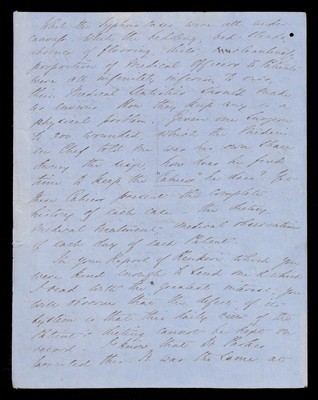 While the Typhus cases were all under
canvas while the bedding, bed steads
absence of flooring, diets
proportion of Medical Officers to Patients
were all infinitely inferior to ours,
their Medical Statistics should make
us envious. How they kept any is a
physical problem. Given one Surgeon
to 200 wounded, which the Médecin
en Chef told me was his own Share
during the siege, how does he find
time to keep the "Cahiers" he does? For
these Cahiers present the complete
history of each case - the dietary
medical treatment, medical observation
of each day of each Patient.
In your Report of Renkioi which you
were kind enough to send me & which
I read with the greatest interest, you
will observe that the defect of our
system is that this daily view of the
Patient's dieting cannot be kept on
record. I know that Dr Parkes
lamented this. It was the same at